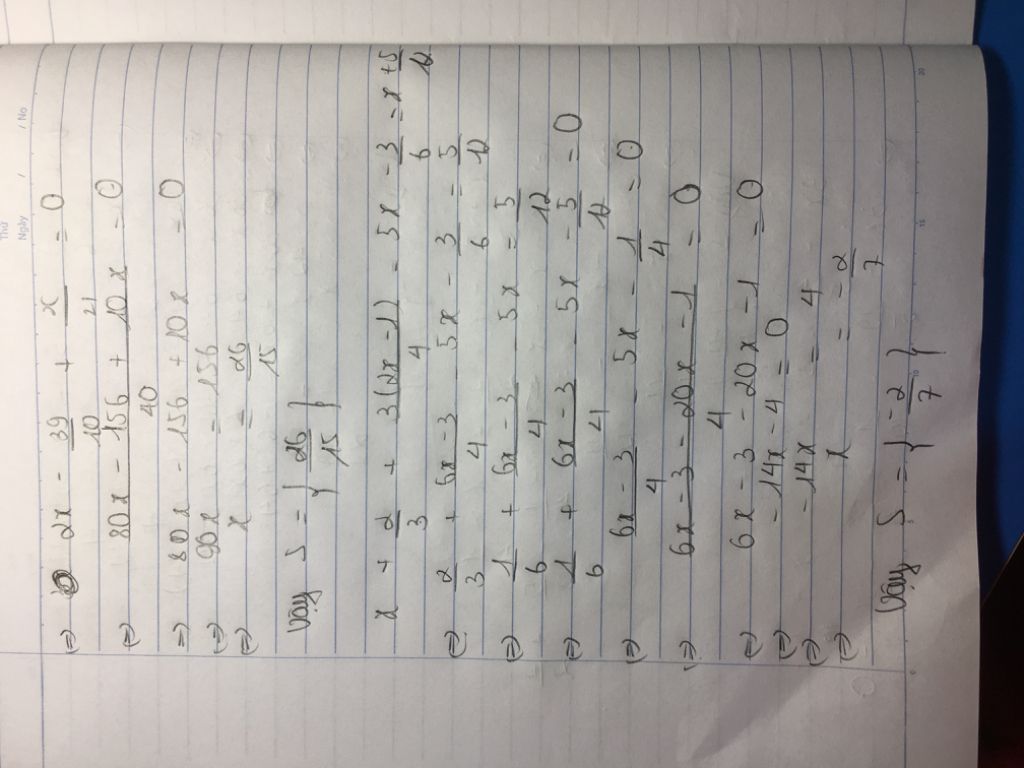 Thứ
Ngày / / No
⇔ 2x - 39/10 + x/4 = 0
⇔ (80x - 156 + 10x)/40 = 0
⇒ 80x - 156 + 10x = 0
⇔ 90x = 156
⇔ x = 26/15
Vậy S = { 26/15 }
x + 2/3 + 3(2x - 1)/4 = 5x - 3/6 = x + 5/12
⇔ 2/3 + (6x - 3)/4 - 5x - 3/6 = 5/12
⇔ 1/6 + (6x - 3)/4 - 5x = 5/12
⇔ 1/6 + (6x - 3)/4 - 5x - 5/12 = 0
⇔ (6x - 3)/4 - 5x - 1/4 = 0
⇔ (6x - 3 - 20x - 1)/4 = 0
⇔ 6x - 3 - 20x - 1 = 0
⇔ -14x - 4 = 0
⇔ -14x = 4
⇔ x = -2/7
Vậy S = { -2/7 }